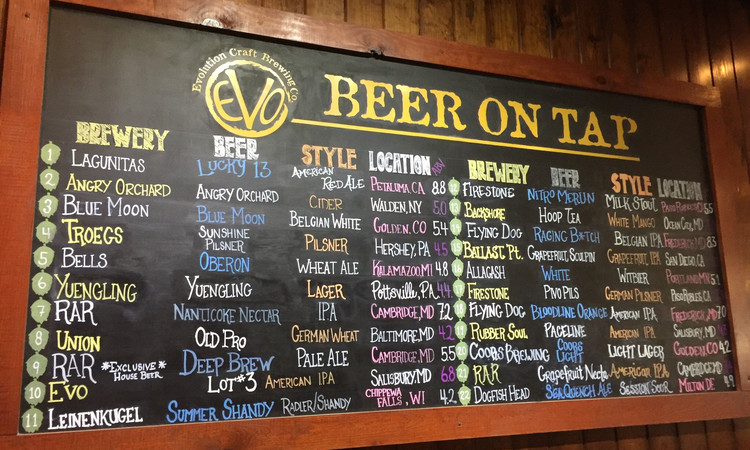 Evolution Craft Brewing Co.
EVO
BEER ON TAP
BREWERY BEER STYLE LOCATION ABV
1 LAGUNITAS LUCKY 13 AMERICAN RED ALE PETALUMA CA 8.8
2 ANGRY ORCHARD ANGRY ORCHARD CIDER WALDEN, NY 5.0
3 BLUE MOON BLUE MOON BELGIAN WHITE GOLDEN, CO 5.4
4 TROEGS SUNSHINE PILSNER PILSNER HERSHEY, PA 4.5
5 BELLS OBERON WHEAT ALE KALAMAZOO MI 4.8
6 YUENGLING YUENGLING LAGER Pottsville, PA 4.4
7 RAR NANTICOKE NECTAR IPA CAMBRIDGE, MD 7.2
8 UNION OLD PRO GERMAN WHEAT BALTIMORE, MD 4.2
9 RAR *EXCLUSIVE* HOUSE BEER DEEP BREW PALE ALE CAMBRIDGE, MD 5.5
10 EVO LOT #3 AMERICAN IPA SALISBURY, MD 6.8
11 LEINENKUGEL SUMMER SHANDY RADLER/SHANDY CHIPPEWA FALLS, WI 4.2
BREWERY BEER STYLE LOCATION
12 FIRESTONE NITRO MERLIN MILK STOUT 5.5
13 BACKSHORE HOOP TEA WHITE MANGO OCEAN CITY, MD
14 FLYING DOG RAGING B*TCH BELGIAN IPA FREDERICK MD 8.3
15 BALLAST PT. GRAPEFRUIT SCULPIN GRAPEFRUIT IPA SAN DIEGO, CA
16 ALLAGASH WHITE WITBIER PORTLAND MN 5.1
17 FIRESTONE PIVO PILS GERMAN PILSNER PASO ROBLES, CA
18 FLYING DOG BLOODLINE ORANGE AMERICAN IPA FREDERICK, MD 7.0
19 RUBBER SOUL PACELINE AMERICAN IPA SALISBURY, MD
20 COORS BREWING COORS LIGHT LIGHT LAGER GOLDEN CO 4.2
21 RAR GRAPEFRUIT AMERICAN IPA CAMBRIDGE MD
22 DOGFISH HEAD SEAQUENCH ALE SESSION SOUR MILTON DE 4.9